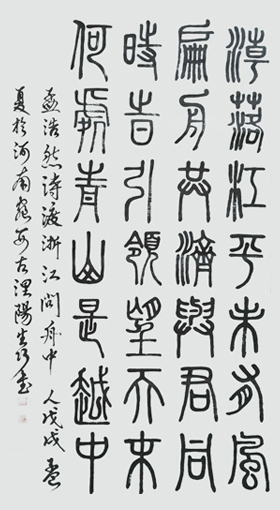 潮落江平未有風
扁舟共濟與君同
時旹引領望天末
何處青山是越中
孟浩然詩渡浙江問舟中人戊戌孟
夏於河南 古 陽 書